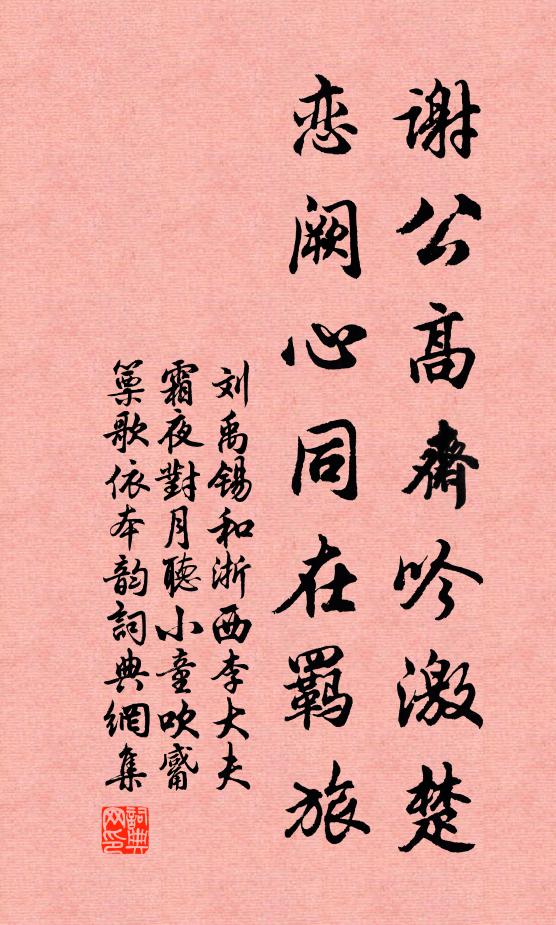 谢公高齋吟激楚
恋阙心同在羁旅
刘禹锡和浙西李大夫
霜夜對月聽小童吹觱
篥歌依本韵詞典網集
詞典网印